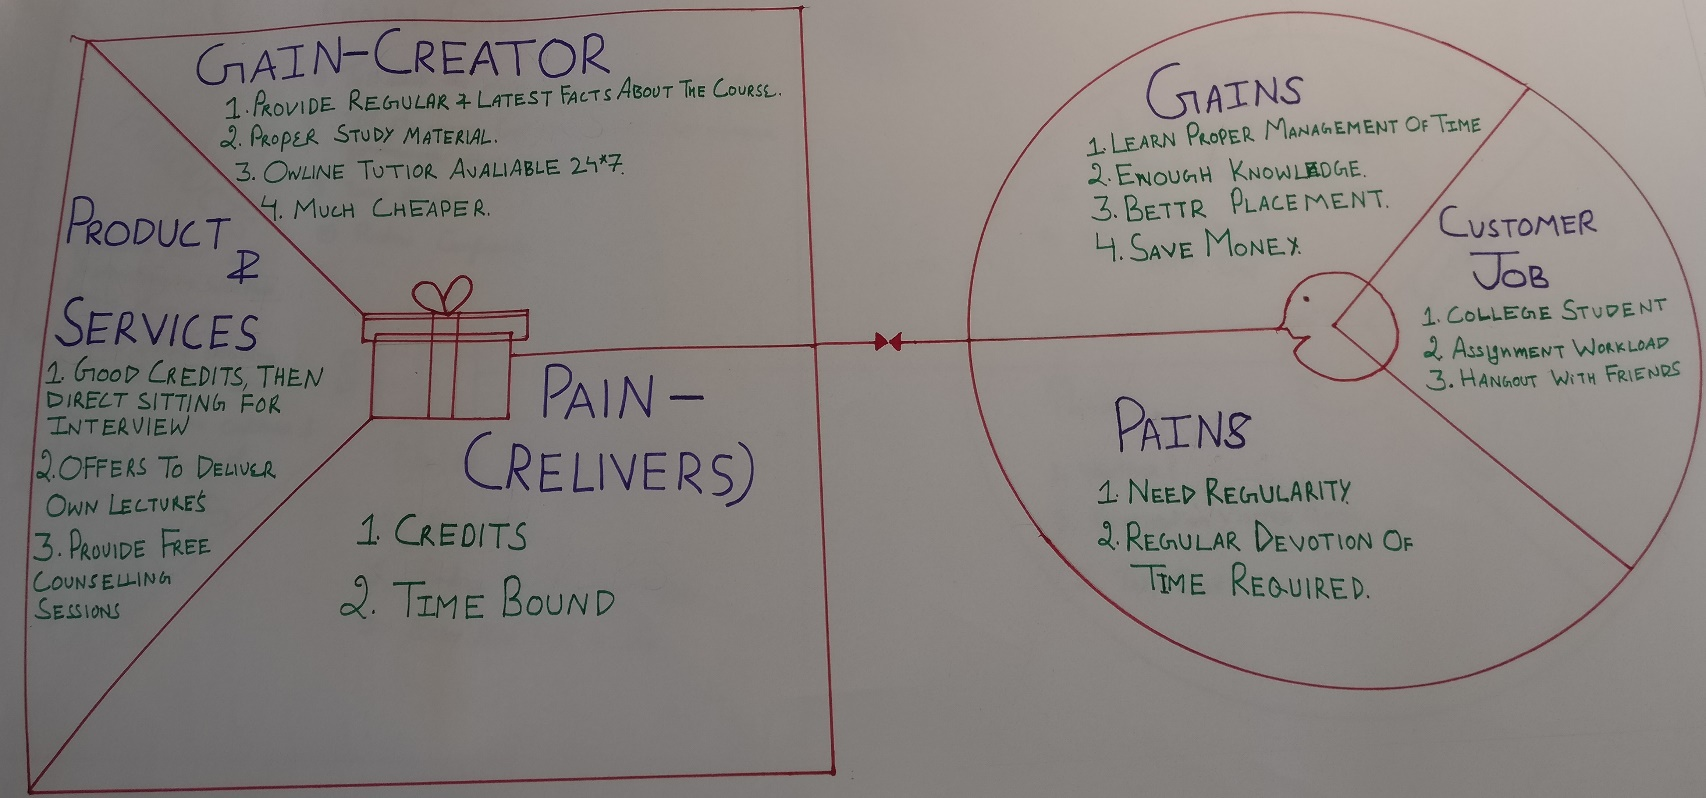 GAIN-CREATOR
1. PROVIDE REGULAR & LATEST FACTS ABOUT THE COURSE.
2. PROPER STUDY MATERIAL.
3. ONLINE TUTIOR AVALIABLE 24*7.
4. MUCH CHEAPER.
PRODUCT
&
SERVICES
1. GOOD CREDITS, THEN
DIRECT SITTING FOR
INTERVIEW
2. OFFERS TO DELIVER
OWN LECTURE'S
3. PROVIDE FREE
COUNSELLING
SESSIONS
PAIN-
(RELIVERS)
1. CREDITS
2. TIME BOUND
GAINS
1. LEARN PROPER MANAGEMENT OF TIME
2. ENOUGH KNOWLEDGE.
3. BETTR PLACEMENT.
4. SAVE MONEY.
CUSTOMER
JOB
1. COLLEGE STUDENT
2. ASSIGNMENT WORKLOAD
3. HANGOUT WITH FRIENDS
PAINS
1. NEED REGULARITY.
2. REGULAR DEVOTION OF
TIME REQUIRED.